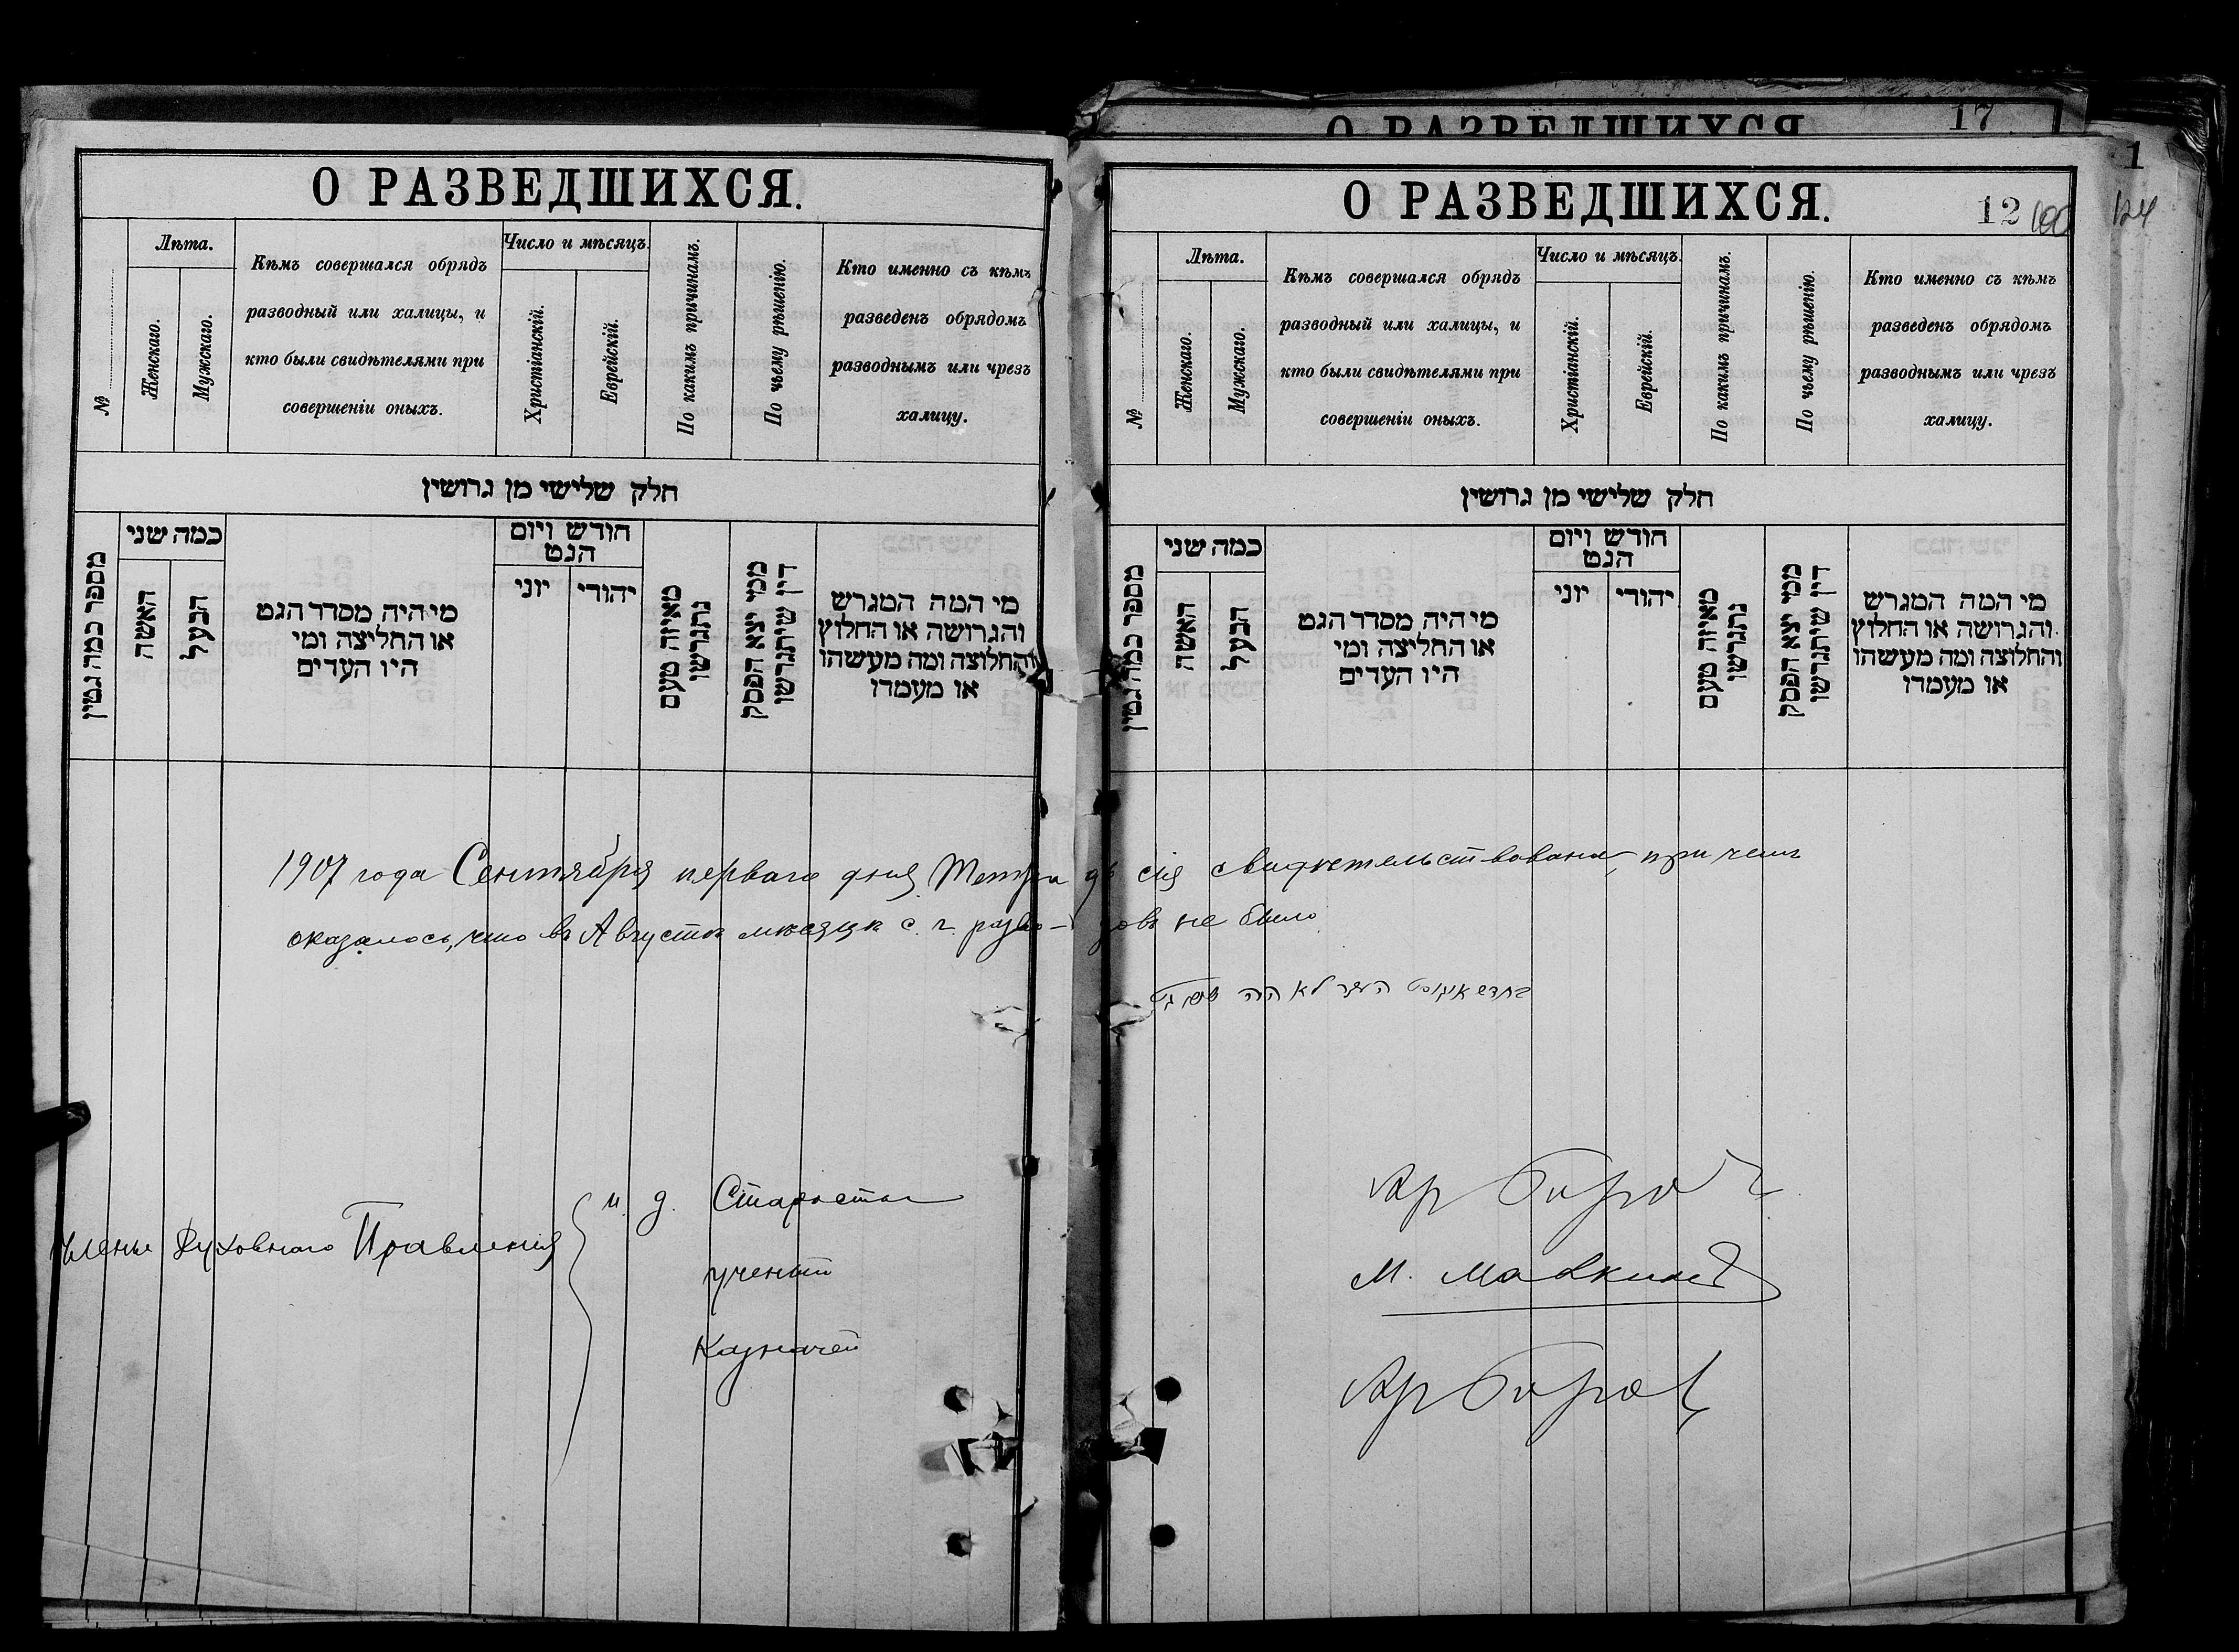 О РАЗВЕДШИХСЯ.
№
Лѣта.
Женскаго.
Мужскаго.
Кѣмъ совершался обрядъ
разводный или халицы, и
кто были свидѣтелями при
совершеніи оныхъ.
Число и мѣсяцъ.
Христіанскій.
Еврейскій.
По какимъ причинамъ.
По чьему рѣшенію.
Кто именно съ кѣмъ
разведенъ обрядомъ
разводнымъ или чрезъ
халицу.
חלק שלישי מן גרושין
מספר כמה גטין
כמה שני
האשה
הבעל
מי היה מסדר הגט
או החליצה ומי
היו העדים
חודש ויום
הגט
יוני
יהודי
מאיזה טעם
נתגרשו
ממי יצא הפסק
דין שיתגרשו
מי המה המגרש
והגרושה או החלוץ
והחלוצה ומה מעשהו
או מעמדו
17
О РАЗВЕДШИХСЯ
1
О РАЗВЕДШИХСЯ.
12
100
124
№
Лѣта.
Женскаго.
Мужскаго.
Кѣмъ совершался обрядъ
разводный или халицы, и
кто были свидѣтелями при
совершеніи оныхъ.
Число и мѣсяцъ.
Христіанскій.
Еврейскій.
По какимъ причинамъ.
По чьему рѣшенію.
Кто именно съ кѣмъ
разведенъ обрядомъ
разводнымъ или чрезъ
халицу.
חלק שלישי מן גרושין
מספר כמה גטין
כמה שני
האשה
הבעל
מי היה מסדר הגט
או החליצה ומי
היו העדים
חודש ויום
הגט
יוני
יהודי
מאיזה טעם
נתגרשו
ממי יצא הפסק
דין שיתגרשו
מי המה המגרש
והגרושה או החלוץ
והחלוצה ומה מעשהו
או מעמדו
1907 года Сентября перваго дня Тетрадь сія свидѣтельствована, при чемъ
оказалось, что въ Августѣ мѣсяцѣ с. г. разво-довъ не было
בחדש אוגוסט העבר לא היה שום גט
Члены Духовнаго Правленія
и. д. Старосты
ученый
Казначей
М.